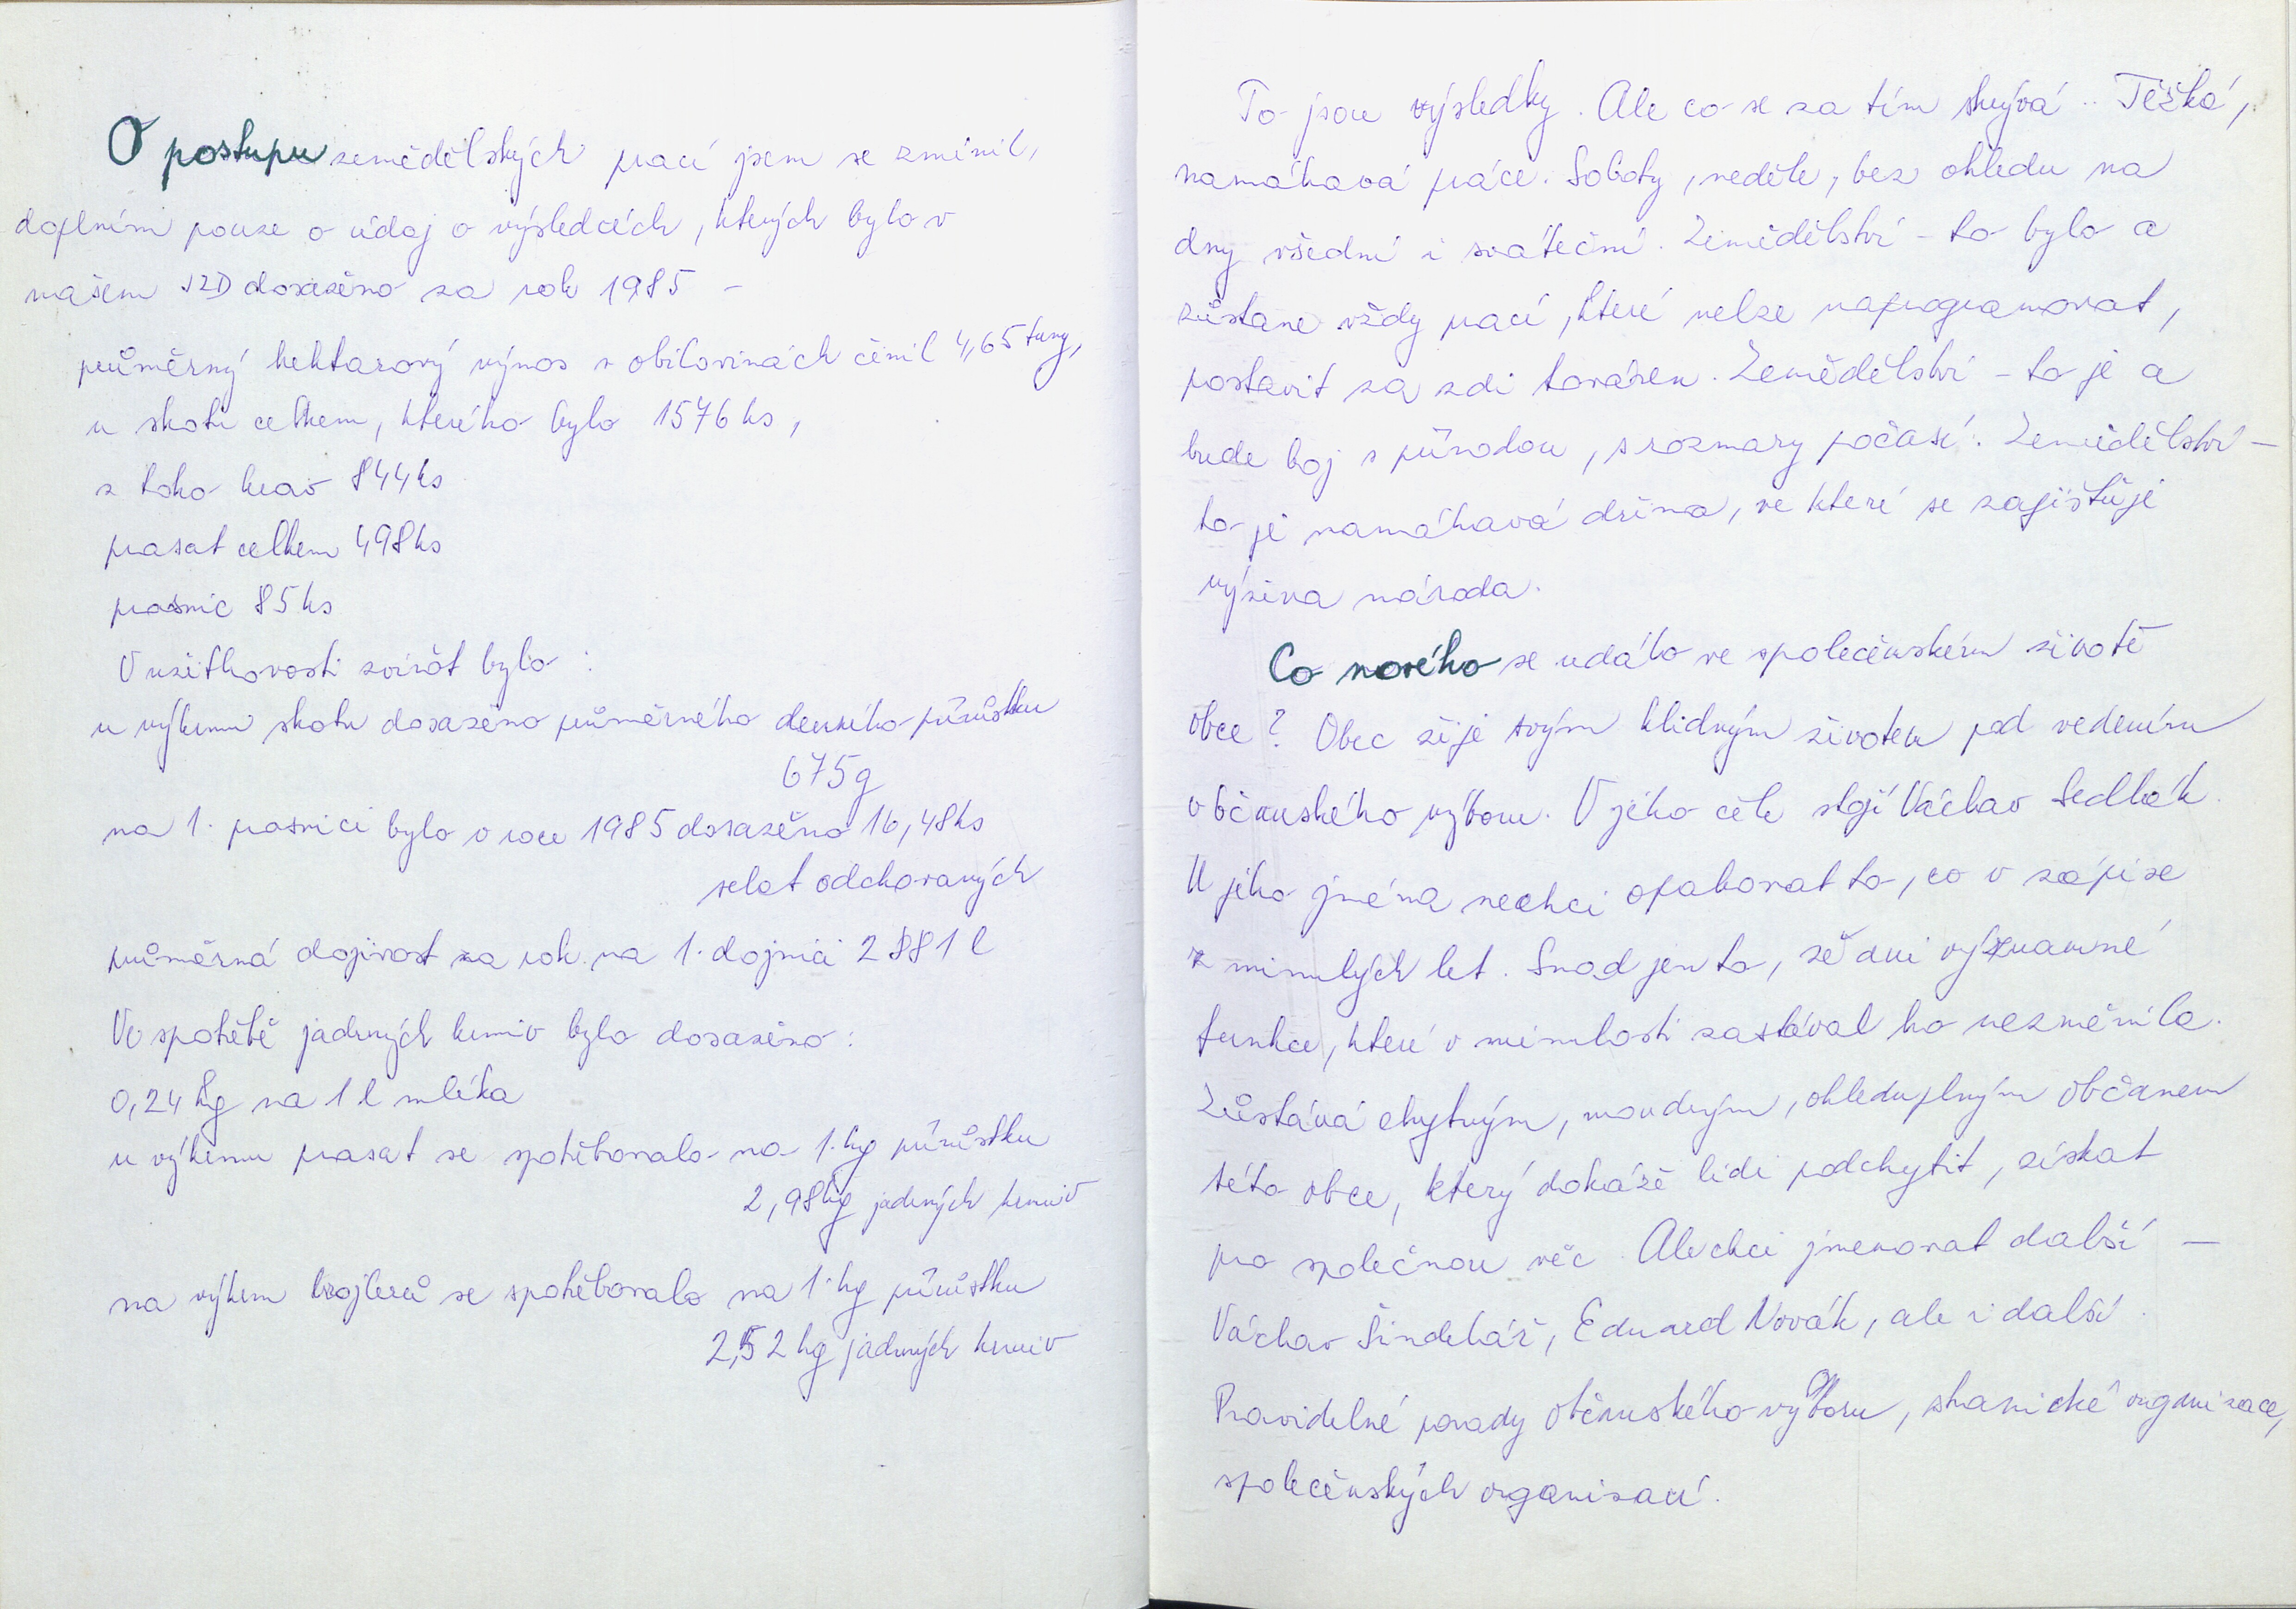 O postupu zemědělských prací jsem se zmínil,
doplním pouze o údaj o výsledcích, kterých bylo v
našem JZD dosaženo za rok 1985 -
průměrný hektarový výnos v obilovinách činil 4,65 tuny,
u skotu celkem, kterého bylo 1576 ks,
z toho krav 844 ks
prasat celkem 498 ks
prasnic 85 ks
V užitkovosti zvířat bylo :
u výkrmu skotu dosaženo průměrného denního přírůstku
675 g
na 1. prasnici bylo v roce 1985 dosaženo 16,48 ks
selat odchovaných
průměrná dojivost za rok na 1. dojnici 2 881 l
Ve spotřebě jadrných krmiv bylo dosaženo :
0,24 kg na 1 l mléka
u výkrmu prasat se spotřebovalo na 1. kg přírůstku
2,98 kg jadrných krmiv
na výkrm brojlerů se spotřebovalo na 1. kg přírůstku
2,52 kg jadrných krmiv
To jsou výsledky. Ale co se za tím skrývá .. Těžká,
namáhavá práce. Soboty, neděle, bez ohledu na
dny všední i sváteční. Zemědělství - to bylo a
zůstane vždy prací, které nelze naprogramovat,
postavit za zdi továren. Zemědělství - to je a
bude boj s přírodou, s rozmary počasí. Zemědělství -
to je namáhavá dřina, ve které se zajišťuje
výživa národa.
Co nového se událo ve společenském životě
obce ? Obec žije svým klidným životem pod vedením
občanského výboru. V jeho čele stojí Václav Sedlák.
U jeho jména nechci opakovat to, co v zápise
z minulých let. Snad jen to, že ani významné
funkce, které v minulosti zastával ho nezměnila.
Zůstává chytrým, moudrým, ohleduplným občanem
této obce, který dokáže lidi podchytit, získat
pro společnou věc. Ale chci jmenovat další -
Václav Šindelář, Eduard Novák, ale i další.
Pravidelné porady občanského výboru, stranické organizace,
společenských organizací.